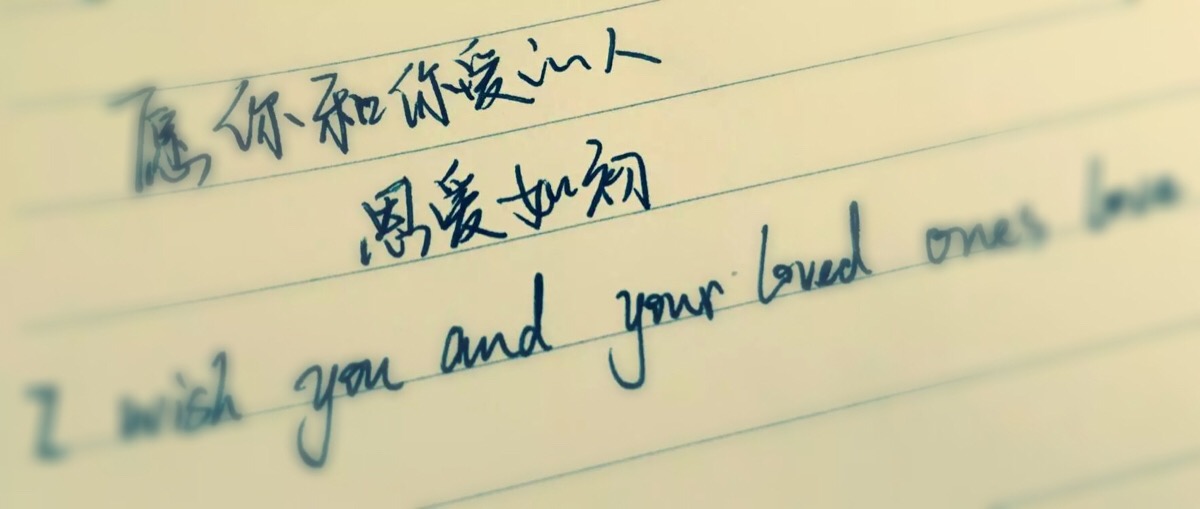 愿你和你爱的人
恩爱如初
I wish you and your loved ones love